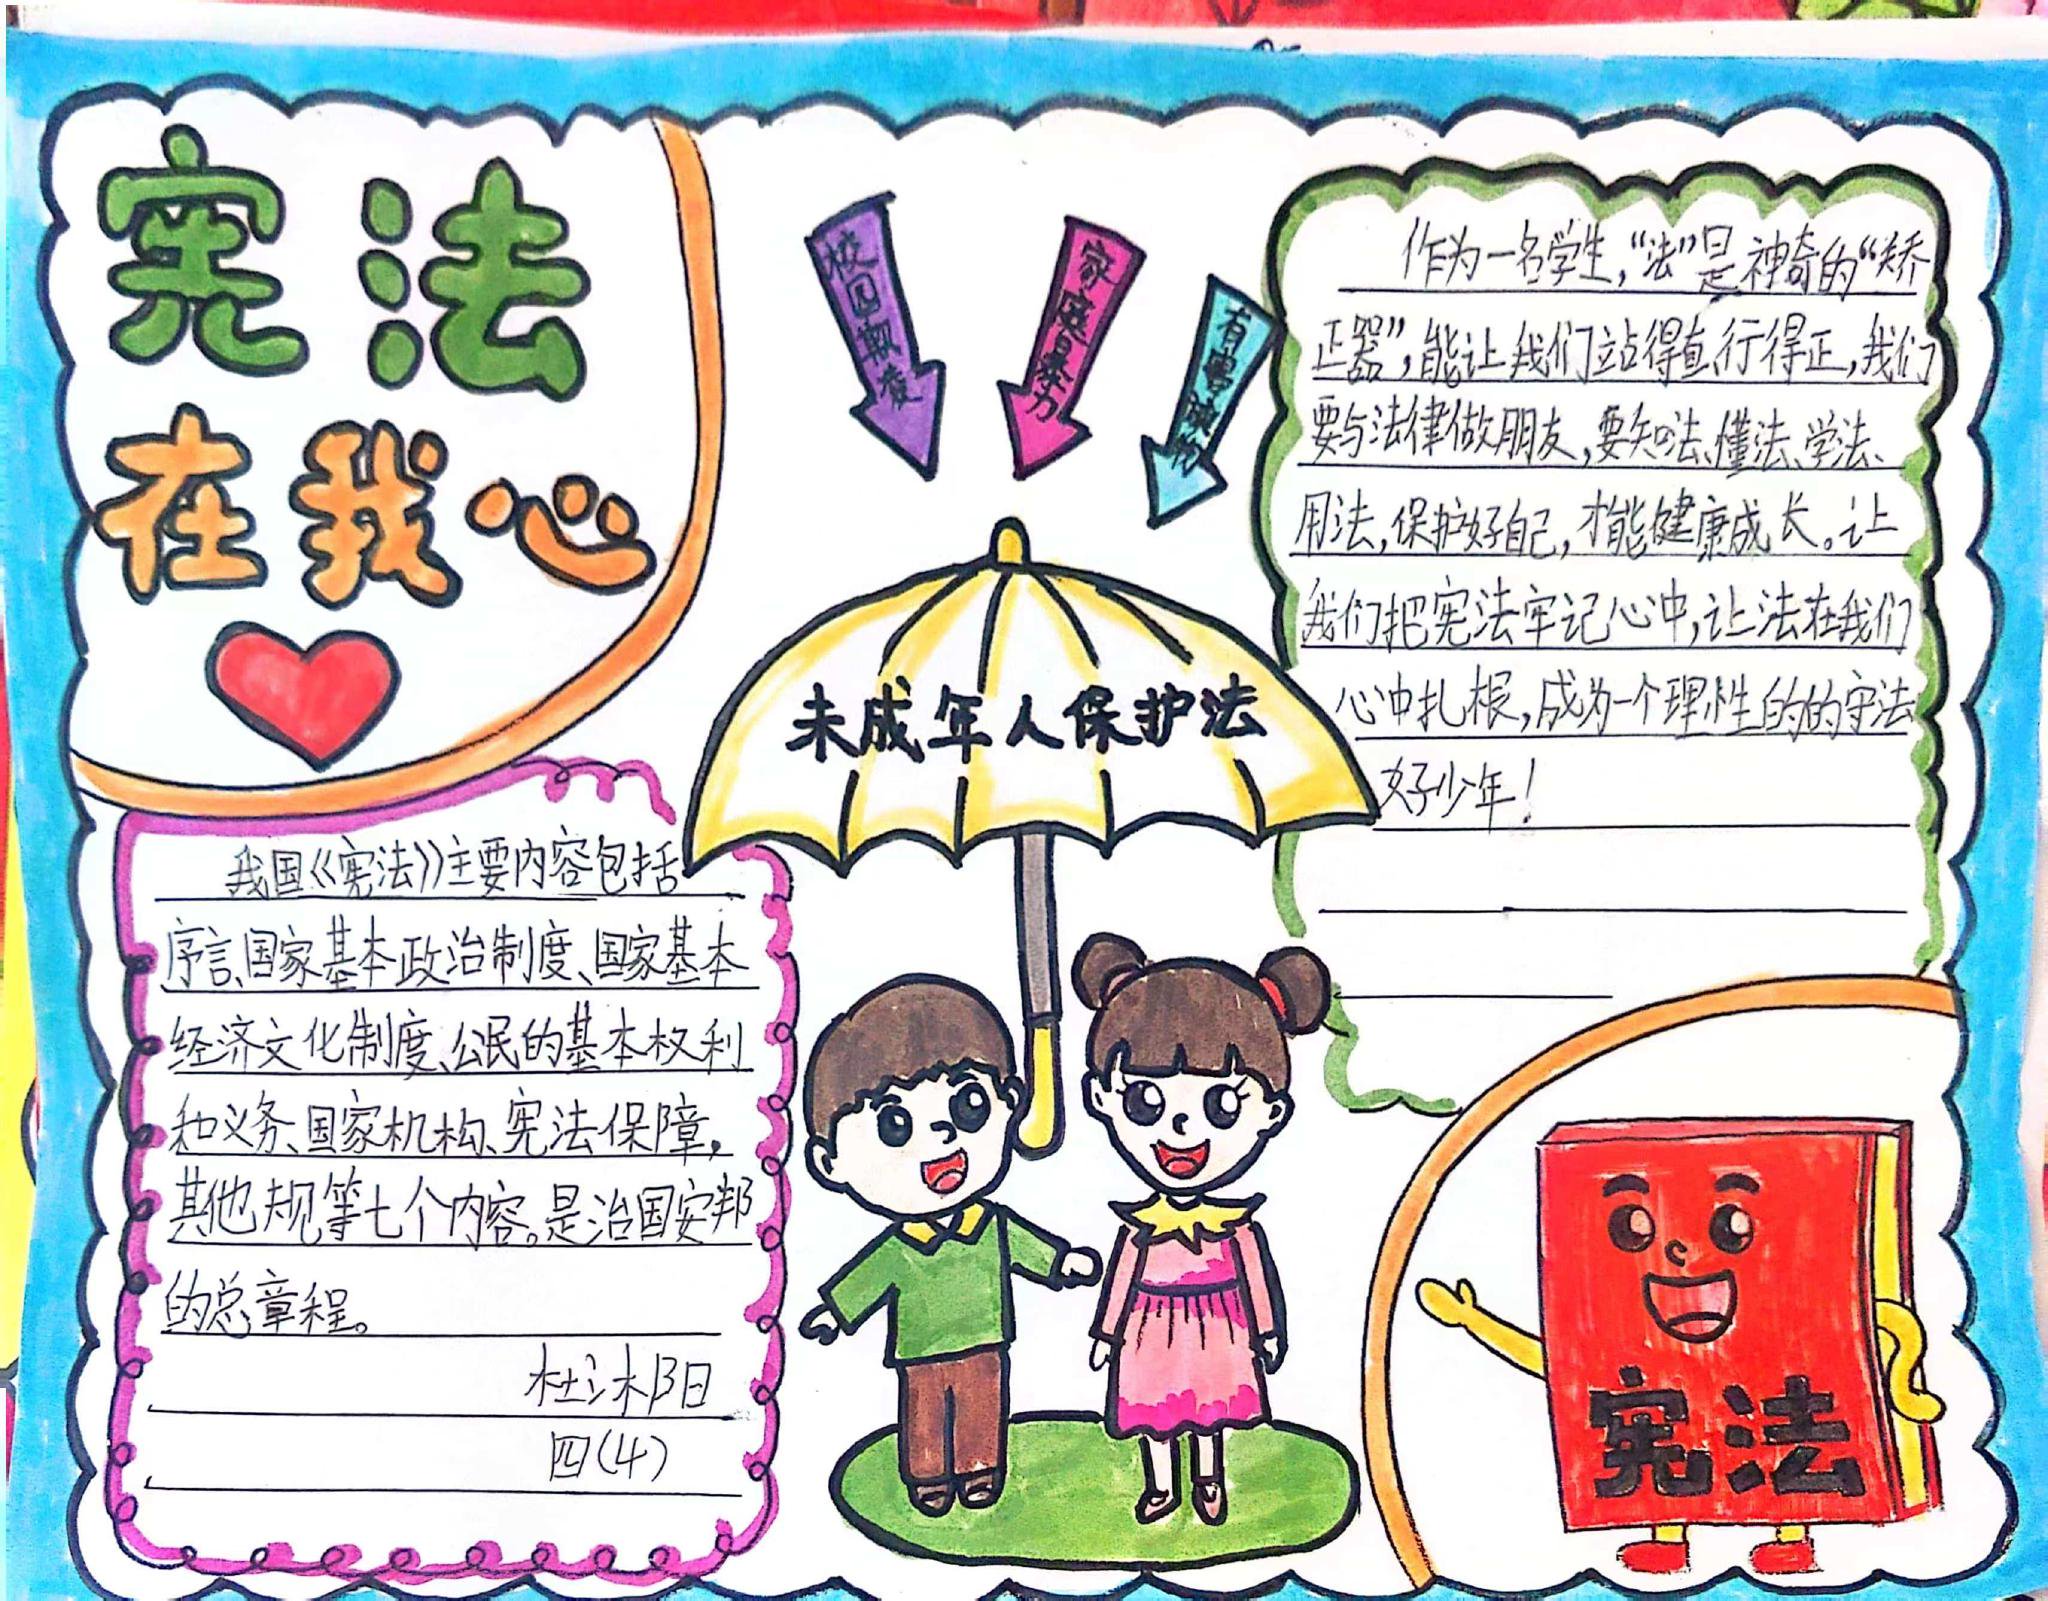 宪法
在我心
校园欺凌
家庭暴力
有害读物
未成年人保护法
作为一名学生,“法”是神奇的“矫
正器”,能让我们站得直,行得正,我们
要与法律做朋友,要知法、懂法、学法、
用法,保护好自己,才能健康成长。让
我们把宪法牢记心中,让法在我们
心中扎根,成为一个理性的的守法
好少年!
我国《宪法》主要内容包括
序言、国家基本政治制度、国家基本
经济文化制度、公民的基本权利
和义务、国家机构、宪法保障,
其他规等七个内容。是治国安邦
的总章程。
杜沐阳
四(4)
宪法